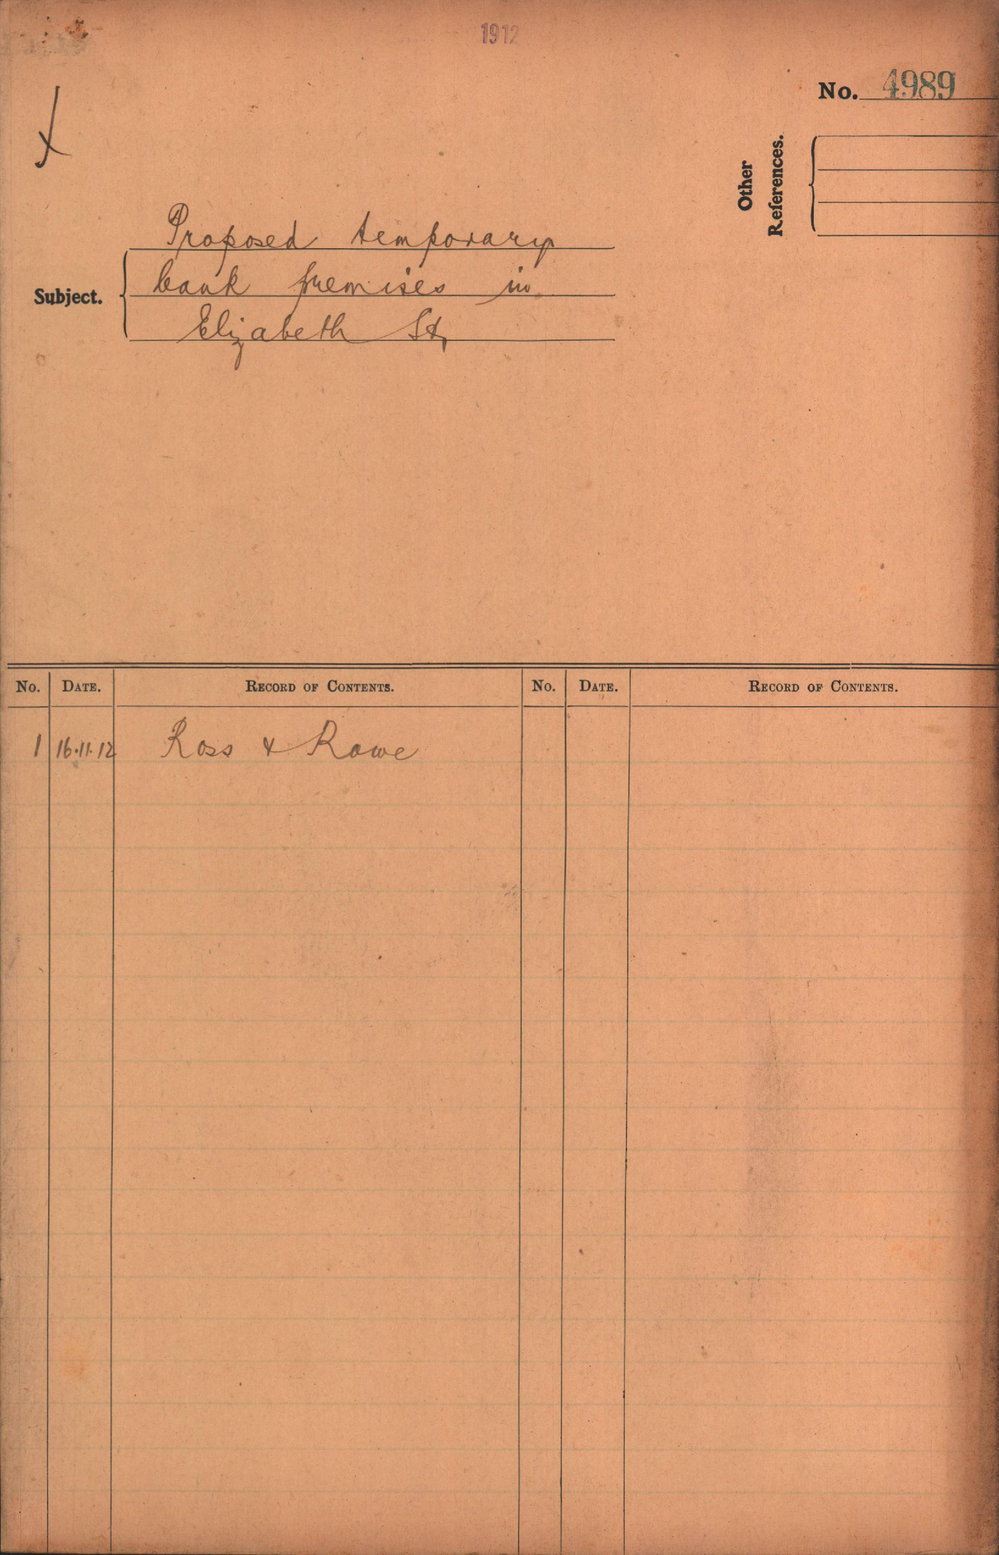 1912
No. 4989
Other
References.
Subject.
Proposed temporary
bank premises in
Elizabeth St,
No. DATE. RECORD OF CONTENTS. No. DATE. RECORD OF CONTENTS.
1 16.11.12 Ross & Rowe